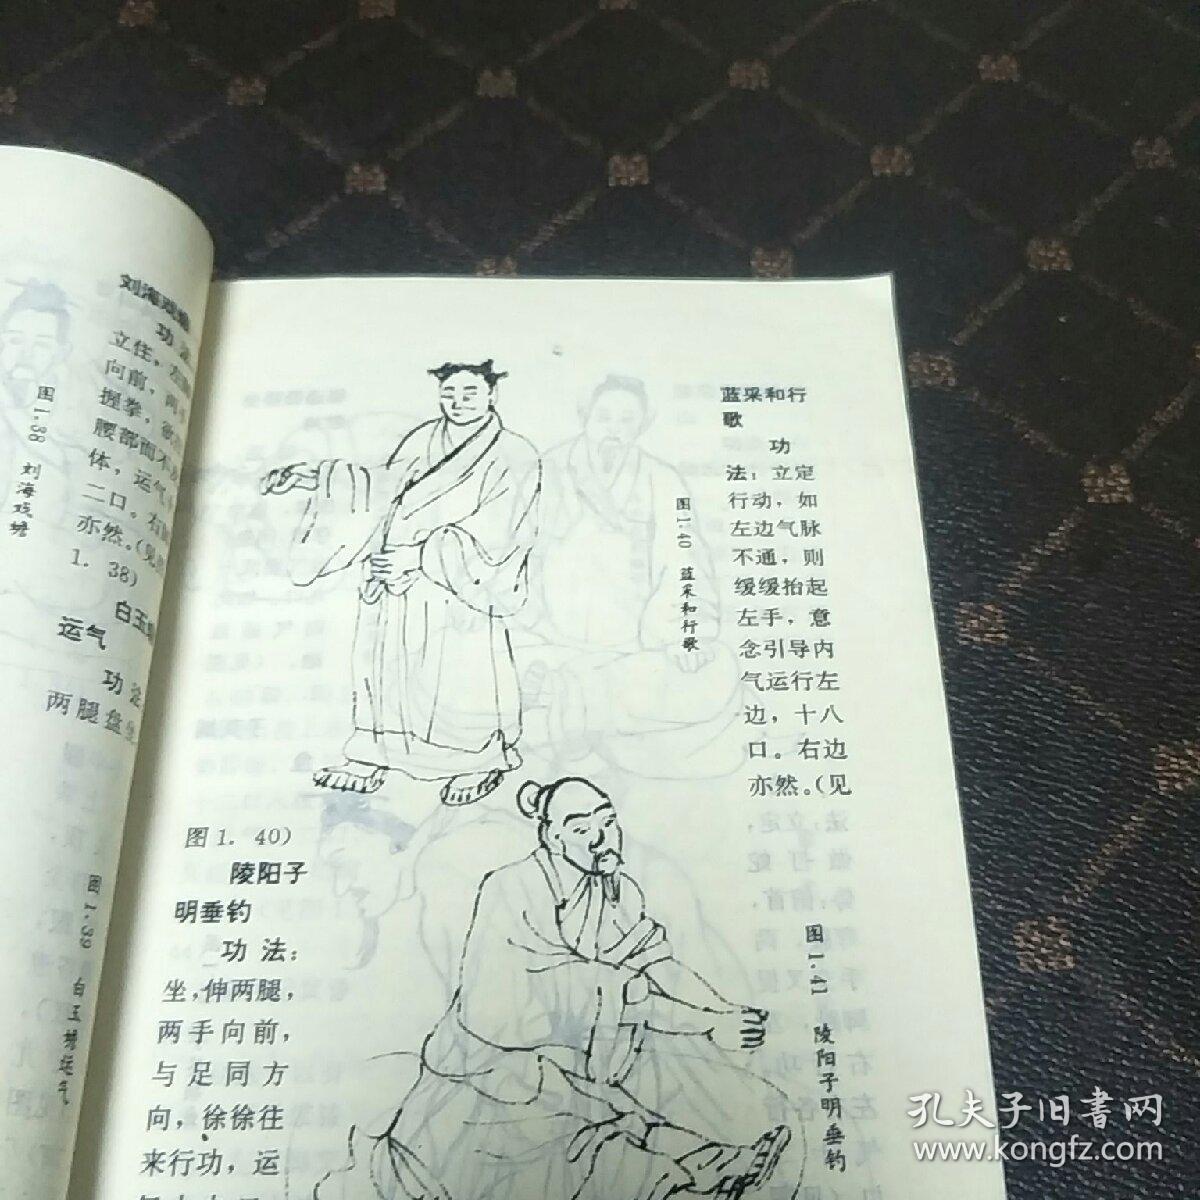 刘海戏蟾
功法
立住，左
向前，两
握拳，
腰部而不
体，运气
二口。右
亦然。（见
1. 38)
白玉蟾
运气
功法
两腿盘
图1.38 刘海戏蟾
图1.39 白玉蟾运气
蓝采和行
歌
功
法：立定
行动，如
左边气脉
不通，则
缓缓抬起
左手，意
念引导内
气运行左
边，十八
口。右边
亦然。（见
图1. 40)
图1.40 蓝采和行歌
陵阳子
明垂钓
功法：
坐，伸两腿，
两手向前，
与足同方
向，徐徐往
来行功，运
图1.41 陵阳子明垂钓
孔夫子旧书网
www.kongfz.com